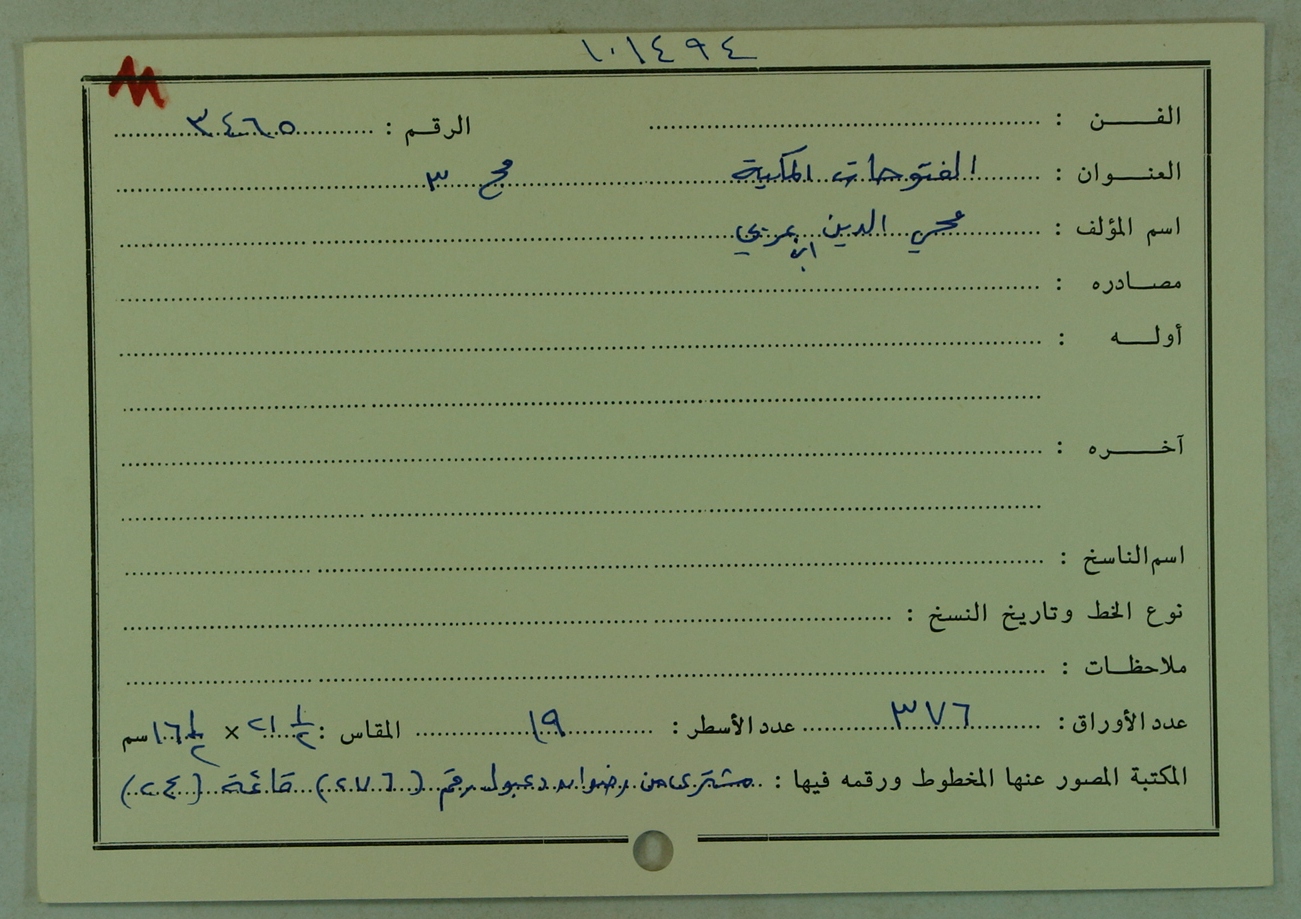 ١٠١٤٩٤
الفن : الرقم : ٣٤٦٥
العنوان : الفتوحات المكية مج ٣
اسم المؤلف : محي الدين ابن عربي
مصادره :
أوله :
آخره :
اسم الناسخ :
نوع الخط وتاريخ النسخ :
ملاحظات :
عدد الأوراق : ٣٧٦ عدد الأسطر : ١٩ المقاس : ٢١ ١/٢ × ١٦ ١/٢ سم
المكتبة المصور عنها المخطوط ورقمه فيها : مشترى من رضوان دعبول رقم (٢٧٦) قائمة (٢٤)